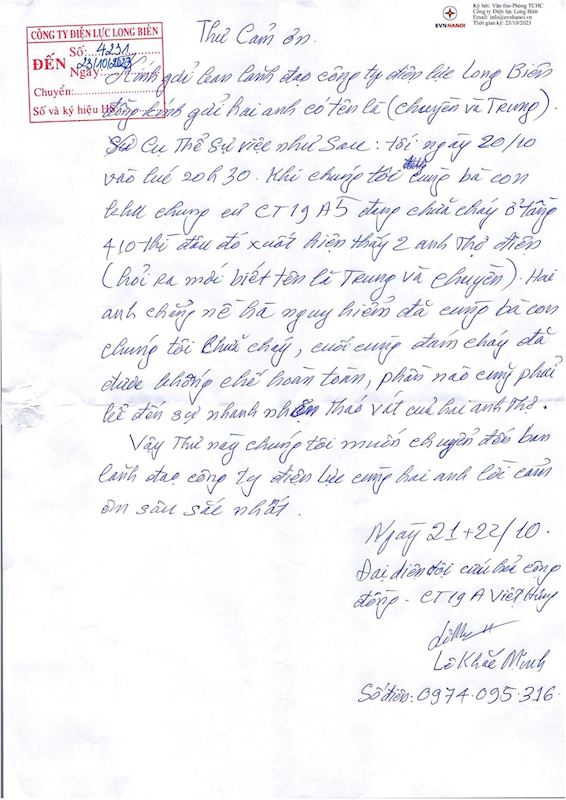 CÔNG TY ĐIỆN LỰC LONG BIÊN
ĐẾN
Số: 4231
Ngày: 23/10/2023
Chuyển:
Số và ký hiệu HS
EVNHANOI
Ký bởi: Văn thư-Phòng TCHC
Công ty Điện lực Long Biên
Email: info@evnhanoi.vn
Thời gian ký: 23/10/2023
Thư Cảm ơn.
Kính gửi ban lãnh đạo công ty điện lực Long Biên
đồng kính gửi hai anh có tên là (chuyền và Trung).
Cụ Thể Sự việc như Sau: tối ngày 20/10
vào lúc 20h30. Khi chúng tôi cùng bà con
khu chung cư CT19A5 đang chữa cháy ở tầng
410 thì đâu đó xuất hiện thấy 2 anh Thợ điện
(hỏi ra mới biết tên là Trung và chuyền). Hai
anh chẳng nề hà nguy hiểm đã cùng bà con
chúng tôi chữa cháy, cuối cùng đám cháy đã
được khống chế hoàn toàn, phần nào cũng phải
kể đến sự nhanh nhẹn tháo vát của hai anh Thợ.
Vậy Thư này chúng tôi muốn chuyển đến ban
lãnh đạo công ty điện lực cùng hai anh lời cảm
ơn sâu sắc nhất.
Ngày 21+22/10.
Đại diện đội cứu hỏa cộng
đồng - CT19A Việt Hưng
Lê Khắc Minh
Số điện: 0974.095.316.